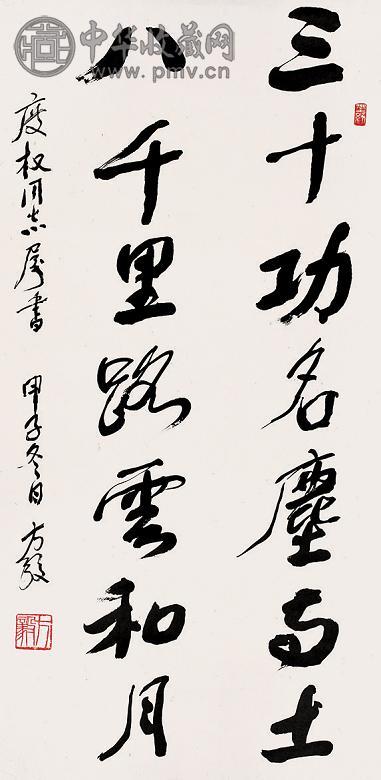 三十功名塵与土
八千里路雲和月
度权同志属書 甲子冬日 方毅
方毅
中华收藏网
www.pmv.cn